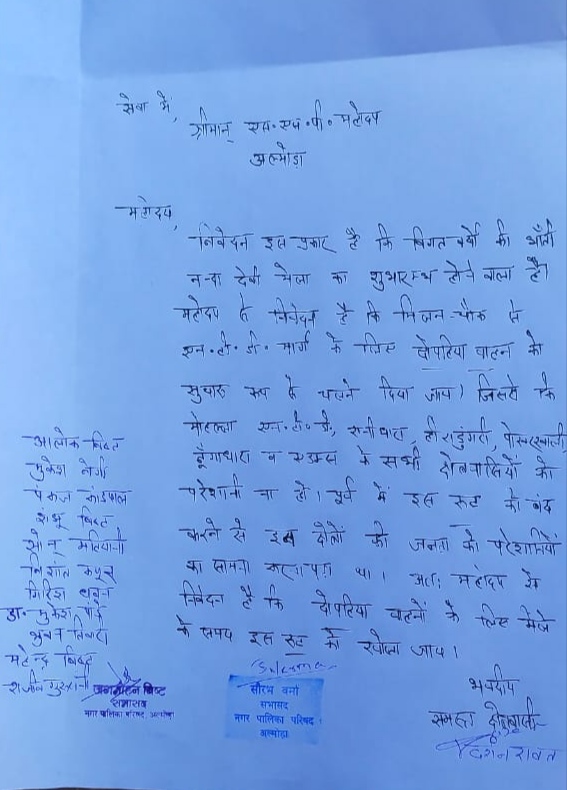 सेवा में,
श्रीमान् एस.एस.पी. महोदय
अल्मोड़ा
महोदय,
निवेदन इस प्रकार है कि विगत वर्षो की भाँती
नन्दा देवी मेला का शुभारम्भ होने वाला है।
महोदय से निवेदन है कि मिलन चौक से
एन.टी.डी. मार्ग के लिए दोपहिया वाहन को
सुचारू रूप से चलने दिया जाय। जिससे कि
मोहल्ला एन.टी.डी, रानीधारा, हीराडुंगरी, पोस्टरवाली,
ढूँगाधारा व के सभी क्षेत्रवासियों को
परेशानी ना हो। पूर्व में इस रूट को बंद
करने से इन क्षेत्रों की जनता को परेशानियों
का सामना करना पड़ा था। अतः महोदय से
निवेदन है कि दोपहिया वाहनों के लिए मेले
के समय इस रूट को खोला जाय।
आलोक बिष्ट
मुकेश नेगी
पंकज कांडपाल
शंभू बिष्ट
निशांत कपूर
गिरिश धवन
डा. मुकेश
भुवन तिवारी
महेन्द्र बिष्ट
जगमोहन बिष्ट
सभासद
नगर पालिका परिषद अल्मोड़ा
सौरभ वर्मा
सभासद
नगर पालिका परिषद
अल्मोड़ा
भवदीय
समस्त क्षेत्रवासी
दर्शन रावत